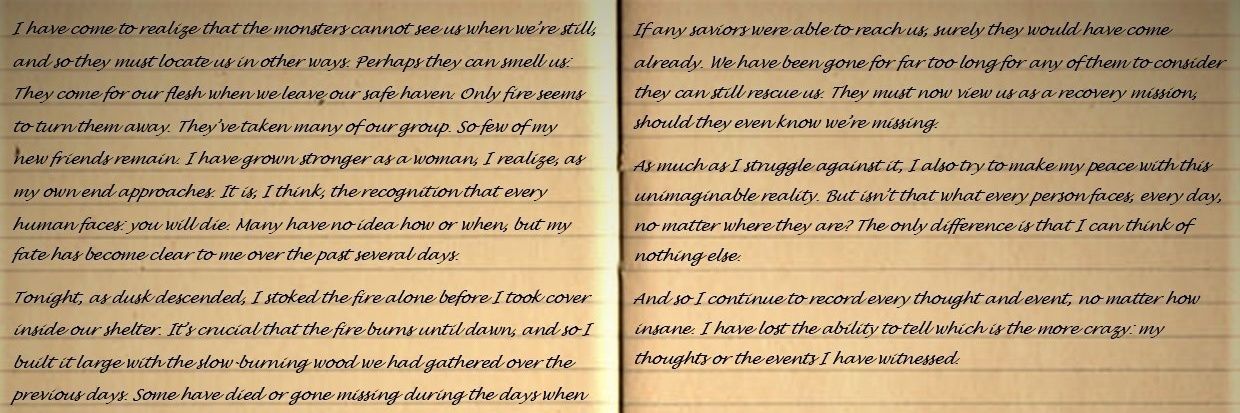 I have come to realize that the monsters cannot see us when we're still,
and so they must locate us in other ways. Perhaps they can smell us.
They come for our flesh when we leave our safe haven. Only fire seems
to turn them away. They've taken many of our group. So few of my
new friends remain. I have grown stronger as a woman, I realize, as
my own end approaches. It is, I think, the recognition that every
human faces: you will die. Many have no idea how or when, but my
fate has become clear to me over the past several days.
Tonight, as dusk descended, I stoked the fire alone before I took cover
inside our shelter. It's crucial that the fire burns until dawn, and so I
built it large with the slow-burning wood we had gathered over the
previous days. Some have died or gone missing during the days when
If any saviors were able to reach us, surely they would have come
already. We have been gone for far too long for any of them to consider
they can still rescue us. They must now view us as a recovery mission,
should they even know we're missing.
As much as I struggle against it, I also try to make my peace with this
unimaginable reality. But isn't that what every person faces, every day,
no matter where they are? The only difference is that I can think of
nothing else.
And so I continue to record every thought and event, no matter how
insane. I have lost the ability to tell which is the more crazy: my
thoughts or the events I have witnessed.